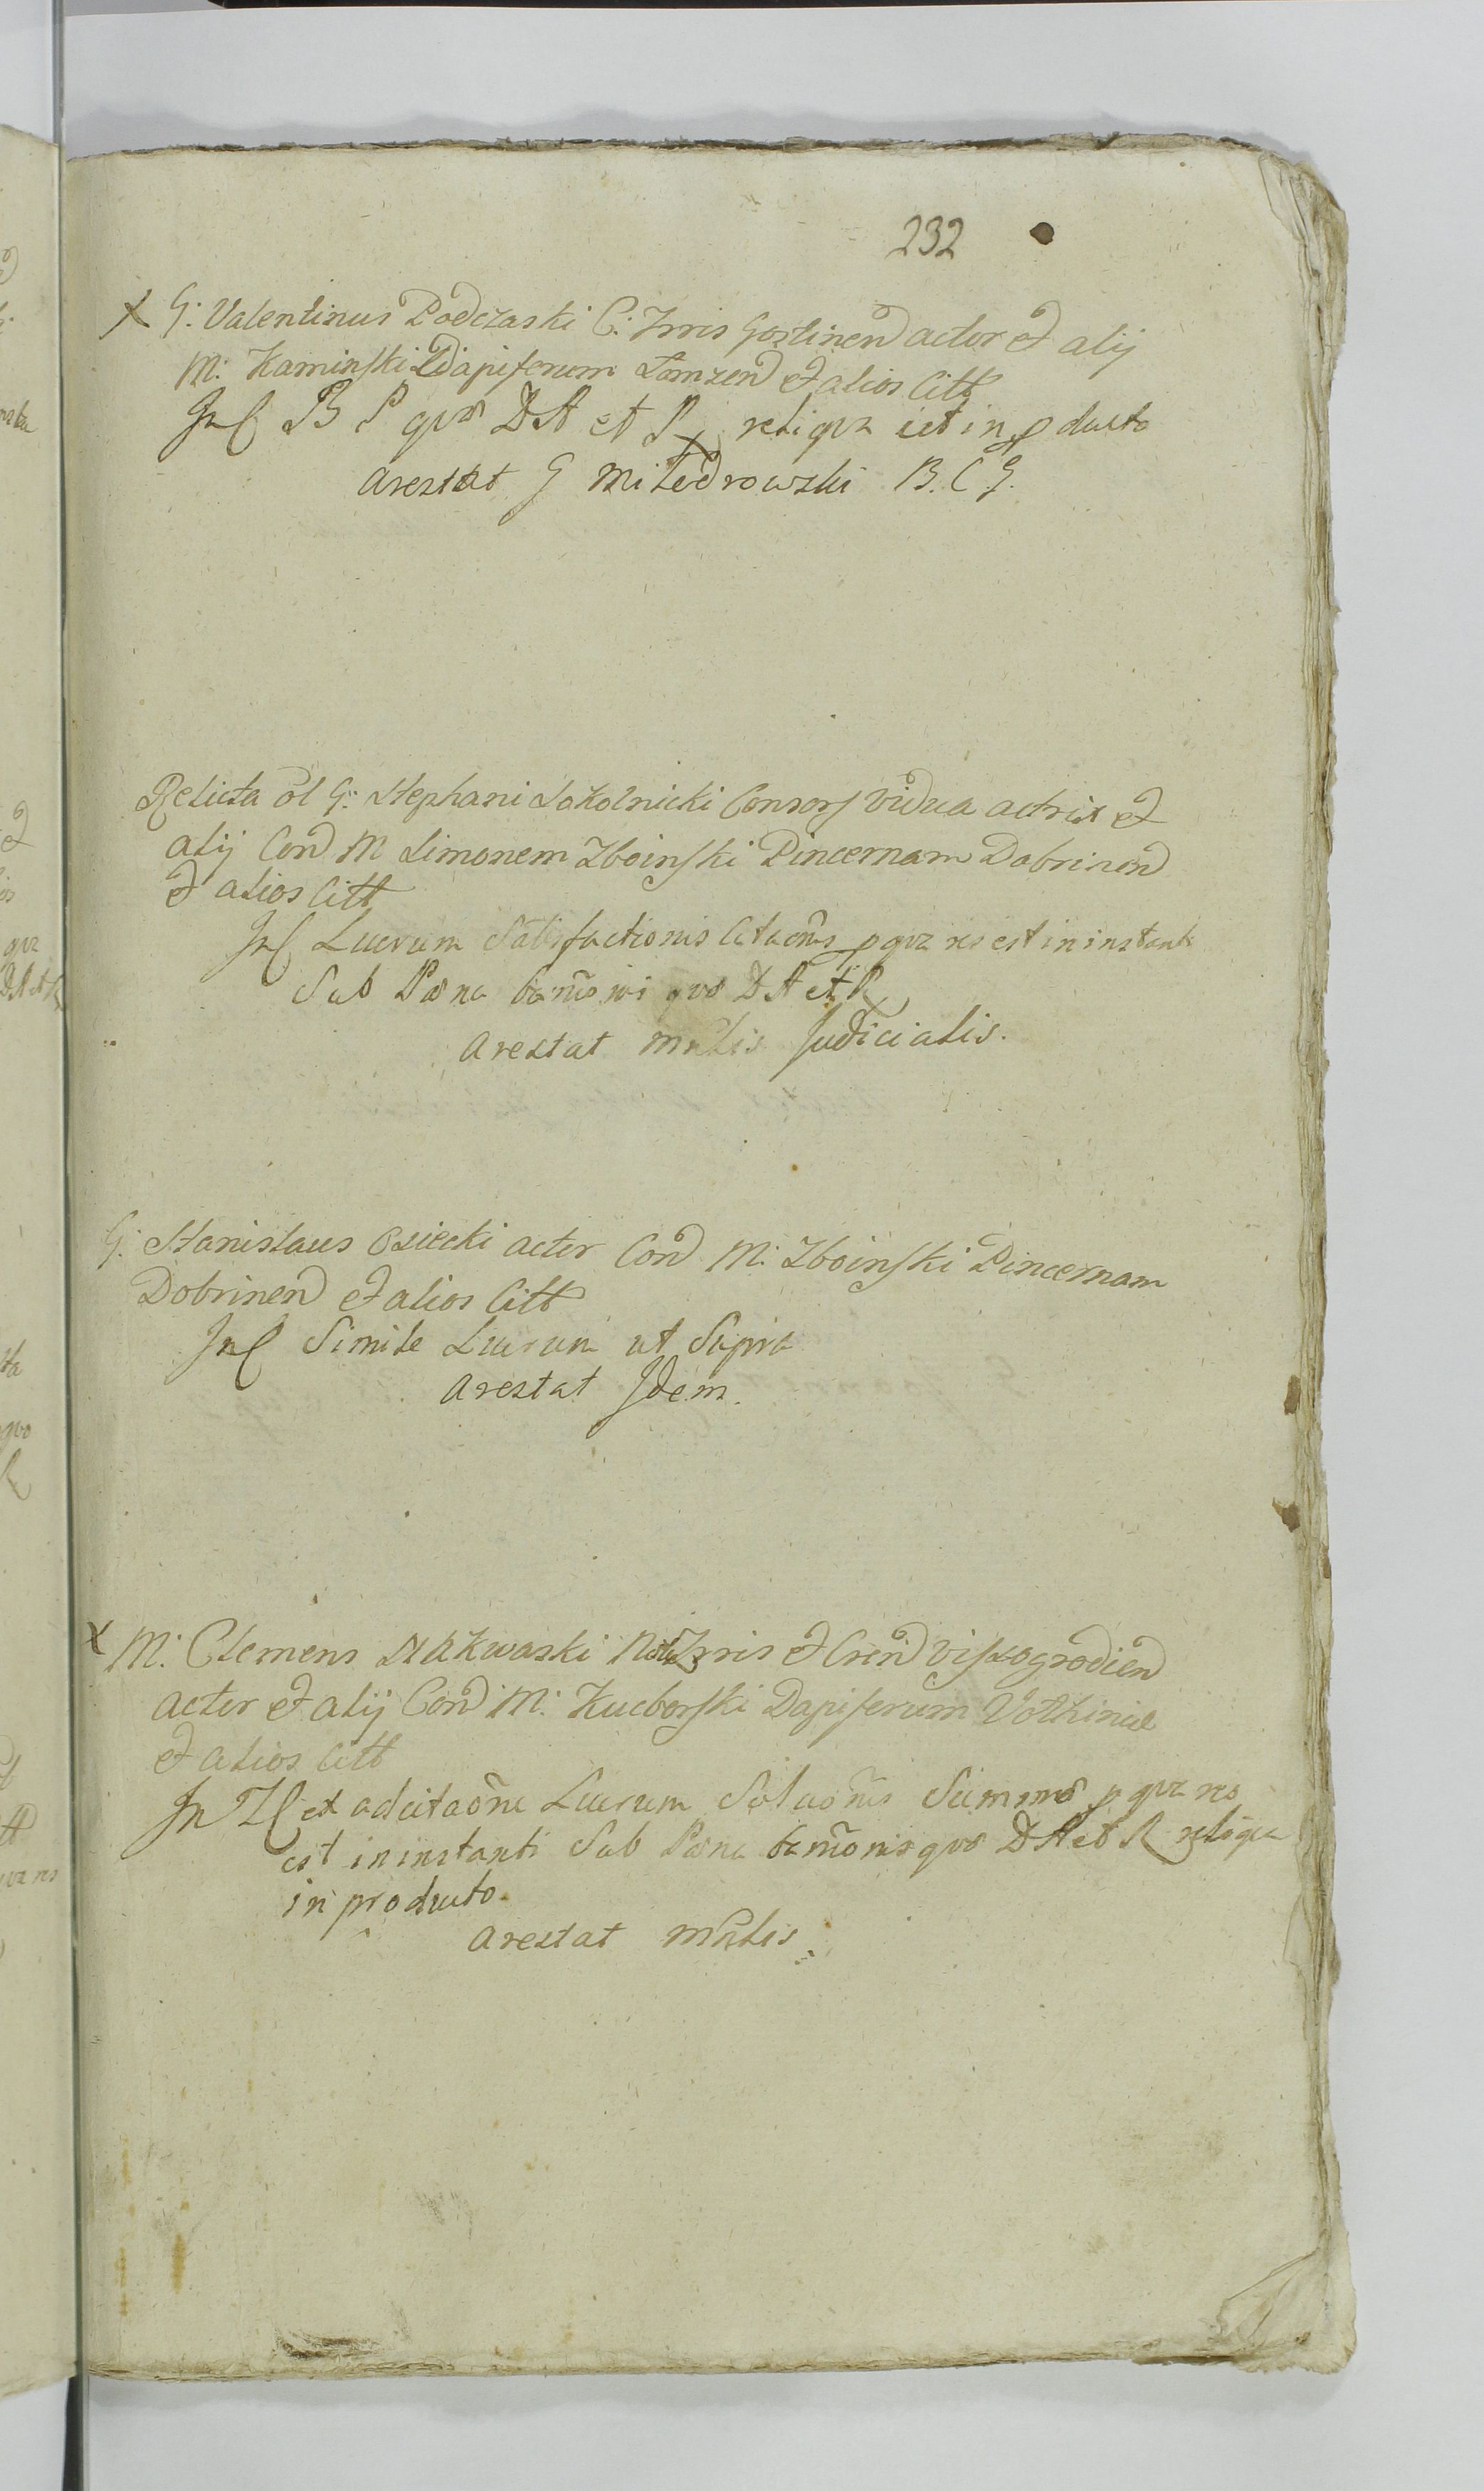 232
X G: Valentinus Podczaski C: Trris Gostinen actor et alij
M: Kaminski Dapiferum Lomzen et alios Citt
In C B P qvo DA et R reliqva ut in producto
Arestat G Miledrowski B. C G.
Relicta ol G: Stephani Sokolnicki Consors vidua actrix et
alij Con M Simonem Zboinski Pincernam Dobrinen
et alios Citt
In C Lucrum Satisfactionis Citaonis p qva res est in instanti
Sub Pœna banōnis qvo DA et R
Arestat Mnlis Judicialis.
G: Stanislaus Osiecki actor Con M: Zboinski Pincernam
Dobrinen et alios Citt
In C Simile Lucrum ut Supra
Arestat Idem.
X M: Clemens Nakwaski Not Trris et Cren Vissogrodien
actor et alij Con M: Kucborski Dapiferum Volhiniæ
et alios Citt
In TC ex adcitaōne Lucrum Soluōnis Summæ p qva res
est in instanti Sub Pœna banōnis qvo DA et R reliqva
in producto.
Arestat Mnlis.